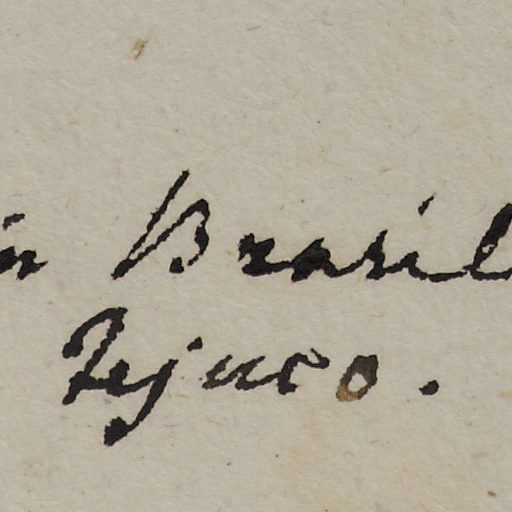 in Brasil
Tejuco.